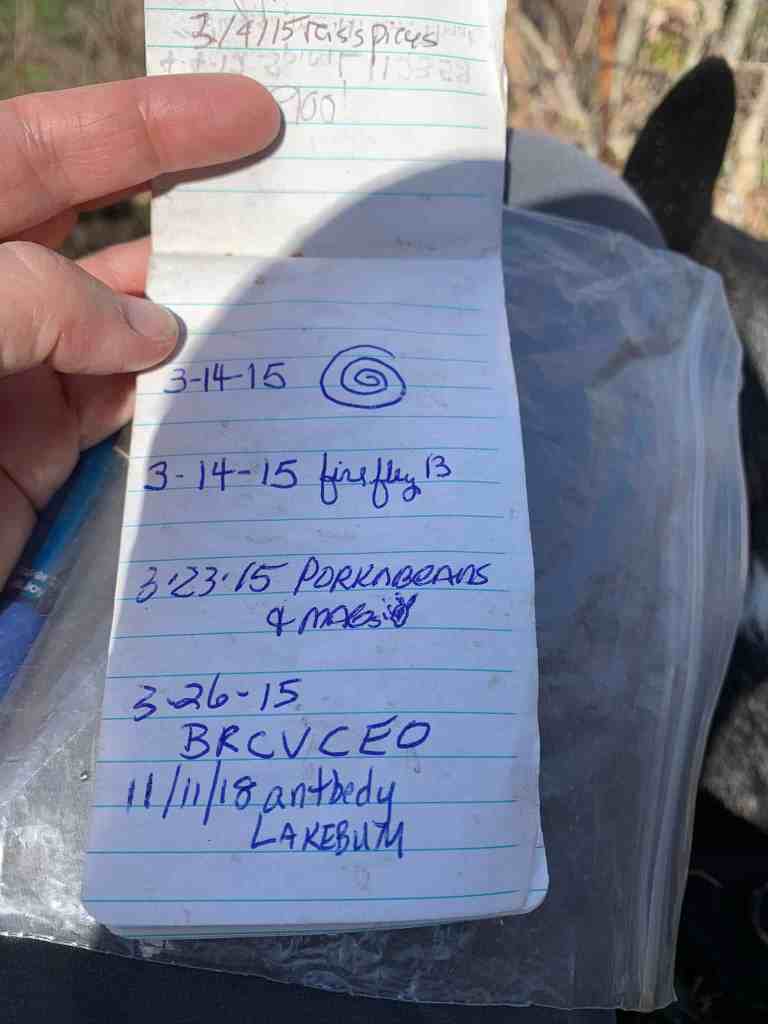 3/4/15
900'
3-14-15
3-14-15 firefley 13
3·23·15 PORKNBEANS
& MAGS
3-26-15
BRCVCEO
11/11/18 antbedy
LAKEBUM